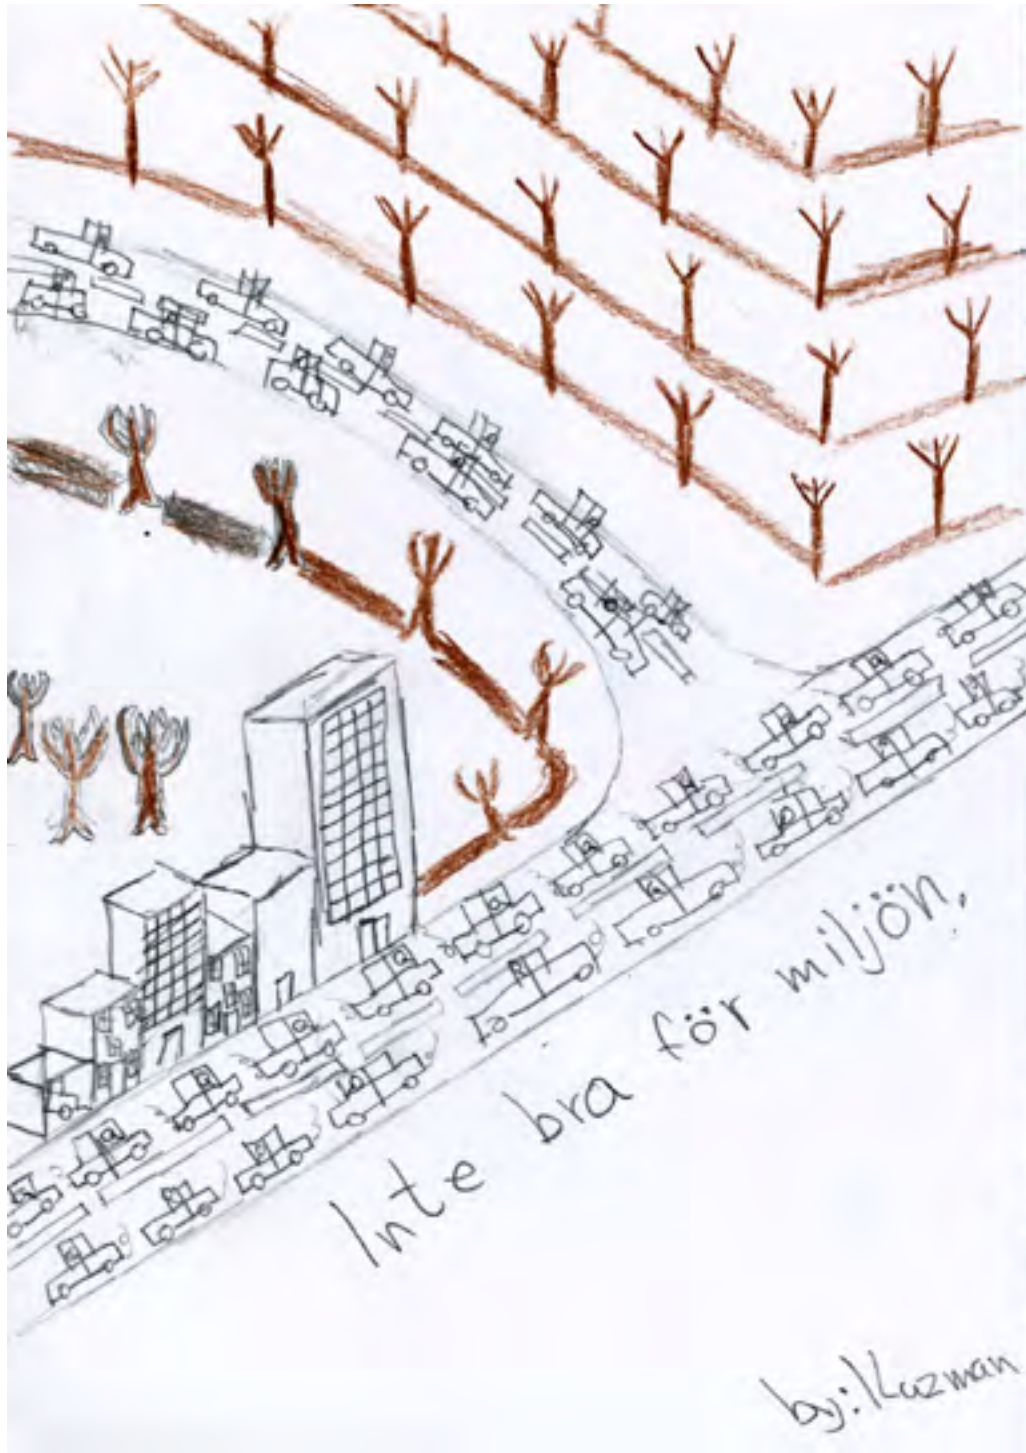 Inte bra för miljön.
by: Kuzman